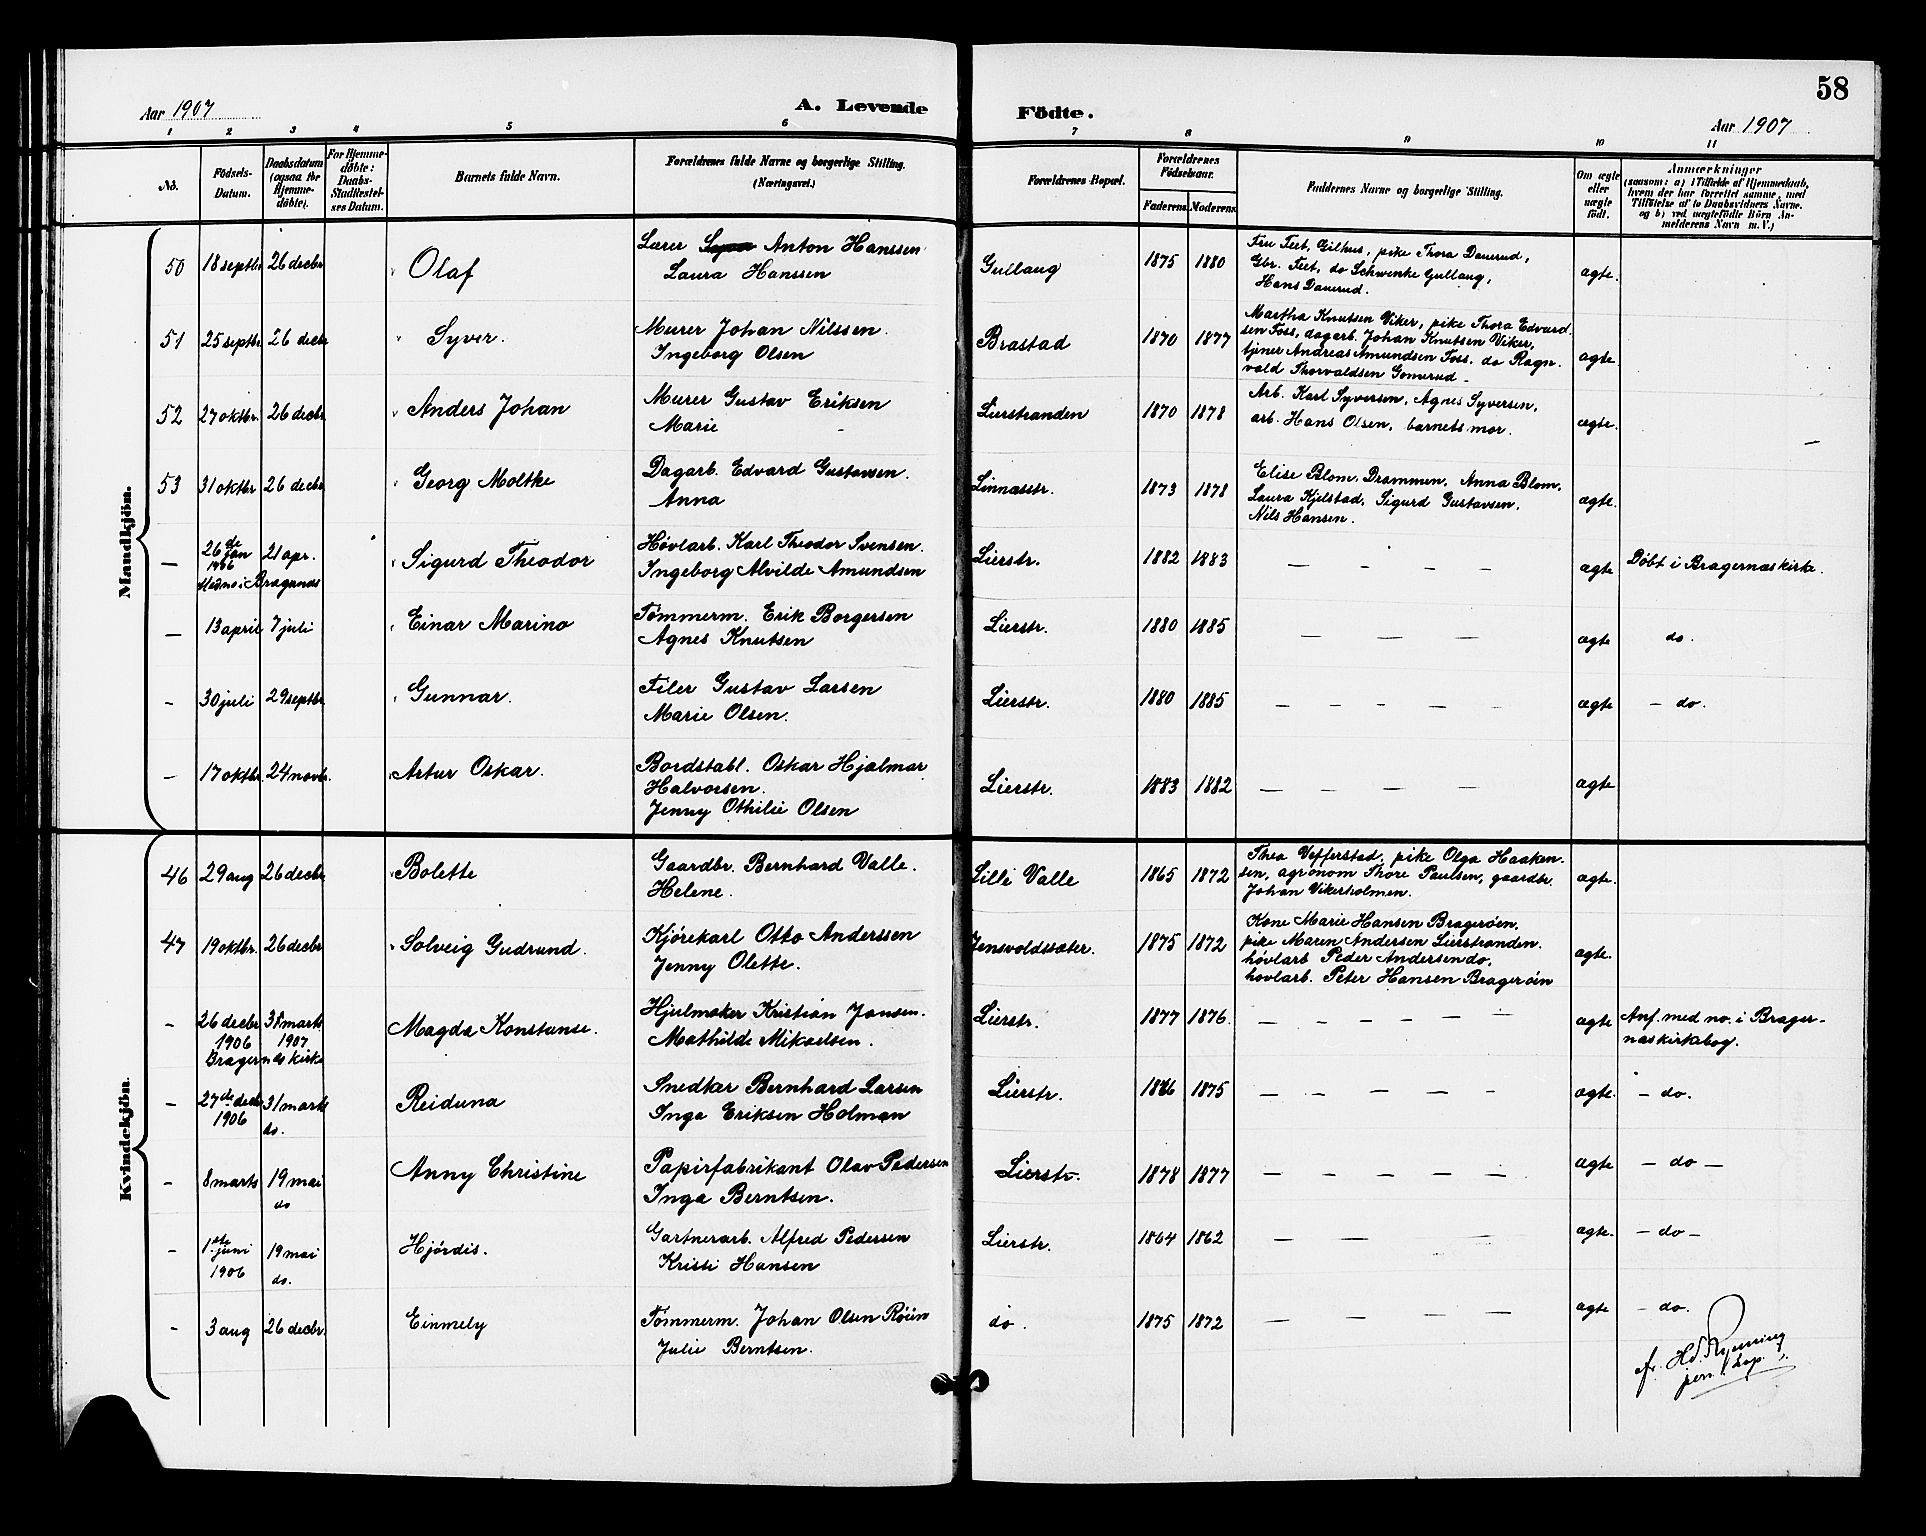 58
Aar 1907
A. Levende
Födte.
Aar 1907
1 2 3 4 5 6 7 8 9 10 11
No.
Födsels-
Datum.
Daabsdatum
(ogsaa for
Hjemme-
döbte).
For Hjemme-
döbte:
Daabs-
Stadfæstel-
ses Datum.
Barnets fulde Navn.
Forældrenes fulde Navne og borgerlige Stilling.
(Næringsvei.)
Forældrenes Bopæl.
Forældrenes
Födselsaar.
Faderens
Moderens
Faddernes Navne og borgerlige Stilling.
Om ægte
eller
uægte
födt.
Anmærkninger
(saasom: a) i Tilfælde af Hjemmedaab,
hvem der har forrettet samme, med
Tilföielse af to Daabsvidners Navne,
og b) ved uægtefödte Börn An-
melderens Navn m. V.)
Mandkjön.
50 18 septbr 26 decbr Olaf
Lærer Anton Hanssen
Laura Hanssen
Gullaug 1875 1880
Fru Feet, Gilhus, pike Thora Dauerud,
Gbr. Feet, do Schwenke Gullaug,
Hans Dauerud.
ægte.
51 25 septbr. 26 decbr Syver.
Murer Johan Nilssen.
Ingeborg Olsen
Brastad 1870 1877
Martha Knutsen Viker, pike Thora Edvard
sen Foss, dagarb. Johan Knutsen Viker,
tjener Andreas Amundsen Foss, do Ragn-
vald Thorvaldsen Gomerud
ægte.
52 27 oktbr. 26 decbr Anders Johan
Murer Gustav Eriksen
Marie
Lierstranden 1870 1878
Arb. Karl Syversen, Agnes Syversen,
arb. Hans Olsen, barnets mor.
ægte.
53 31 oktbr 26 decbr Georg Moltke
Dagarb. Edvard Gustavsen.
Anna
Linnæsstr. 1873 1878
Elise Blom, Drammen, Anna Blom,
Laura Kjelstad, Sigurd Gustavsen,
Nils Hansen.
ægte.
— 26de jan 1906 21 apr. Sigurd Theodor
Med no i Bragenæs
Høvlarb. Karl Theodor Svensen.
Ingeborg Alvilde Amundsen
Lierstr. 1882 1883 — — — — ægte Döbt i Bragernæs kirke.
— 13 april 7 juli Einar Marino
Tömmerm. Erik Borgersen
Agnes Knutsen
Lierstr. 1880 1885 — — — ægte do.
— 30 juli 29 septbr Gunnar.
Filer Gustav Larsen
Marie Olsen.
Lierstr. 1880 1885 — — — — — ægte — do.
— 17 oktbr. 24 novbr. Artur Oskar.
Bordstabl. Oskar Hjalmar
Halvorsen.
Jenny Othilie Olsen
Lierstr. 1883 1882 — — — — ægte
Kvindekjön.
46 29 aug 26 decbr Bolette
Gaardbr. Bernhard Valle.
Helene.
Lille Valle 1865 1872
Thea Vefferstad, pike Olga Haaken-
sen, agronom Thore Paulsen, gaardbr.
Johan Vikerholmen.
ægte.
47 19 oktbr. 26 decbr Solveig Gudrund.
Kjørekarl Otto Anderssen
Jenny Olette.
Jensvoldsæter. 1875 1872
Kone Marie Hansen Bragerøen,
pike Maren Andersen Lierstranden.
høvlarb Peder Andersen do,
høvlarb. Peter Hansen Bragerøen
ægte.
— 26 decbr 1906 31 marts 1907 Magda Konstanse.
Bragernæs kirke
Hjulmaker Kristian Jansen.
Mathilde Mikaelsen.
Lierstr. 1877 1876. — — — — — ægte Anf. med no. i Brager-
næs kirkebog.
— 27de decbr 1906 31 marts do. Reiduna
Snedker Bernhard Larsen
Inga Eriksen Holman
Lierstr. 1875 — — — — ægte. — do.
— 8 marts 19 mai do Anny Christine
Papirfabrikant Olav Pedersen
Inga Berntsen.
Lierstr. 1878 1877 — — — — ægte — do —
— 1ste juni 1906 19 mai do. Hjördis.
Gartnerarb. Alfred Pedersen
Kristi Hansen
Lierstr. 1864 1862 — — — — ægte. — do —
— 3 aug 26 decbr. Einmely
Tömmerm. Johan Olsen Röine
Julie Berntsen.
do. 1875 1872 — — — — ægte — do.